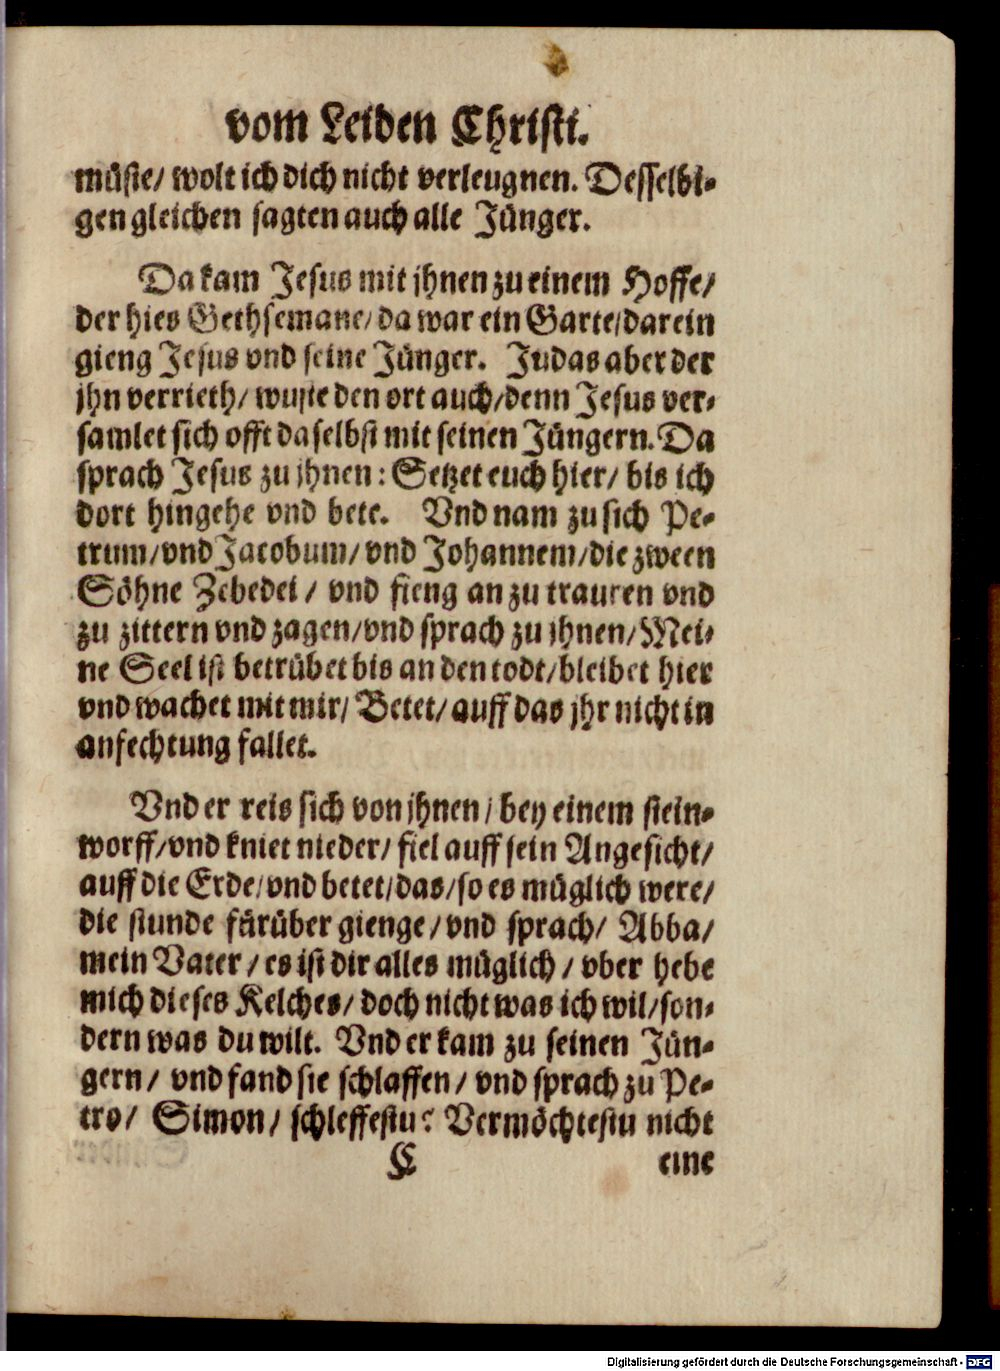 vom Leiden Christi.
müste/ wolt ich dich nicht verleugnen. Desselbi-
gen gleichen sagten auch alle Jünger.
Da kam Jesus mit jhnen zu einem Hoffe/
der hies Gethsemane/ da war ein Garte/ darein
gieng Jesus vnd seine Jünger. Judas aber der
jhn verrieth/ wuste den ort auch/ denn Jesus ver-
samlet sich offt daselbst mit seinen Jüngern. Da
sprach Jesus zu jhnen: Setzet euch hier/ bis ich
dort hingehe vnd bete. Vnd nam zu sich Pe-
trum/ vnd Jacobum/ vnd Johannem/ die zween
Söhne Zebedei/ vnd fieng an zu trauren vnd
zu zittern vnd zagen/ vnd sprach zu jhnen/ Mei-
ne Seel ist betrübet bis an den todt/ bleibet hier
vnd wachet mit mir/ Betet/ auff das jhr nicht in
anfechtung fallet.
Vnd er reis sich von jhnen/ bey einem stein-
worff/ vnd kniet nieder/ fiel auff sein Angesicht/
auff die Erde/ vnd betet/ das/ so es müglich were/
die stunde fürüber gienge/ vnd sprach/ Abba/
mein Vater/ es ist dir alles müglich/ vber hebe
mich dieses Kelches/ doch nicht was ich wil/ son-
dern was du wilt. Vnd er kam zu seinen Jün-
gern/ vnd fand sie schlaffen/ vnd sprach zu Pe-
tro/ Simon/ schleffestu? Vermöchtestu nicht
C eine
Digitalisierung gefördert durch die Deutsche Forschungsgemeinschaft - DFG